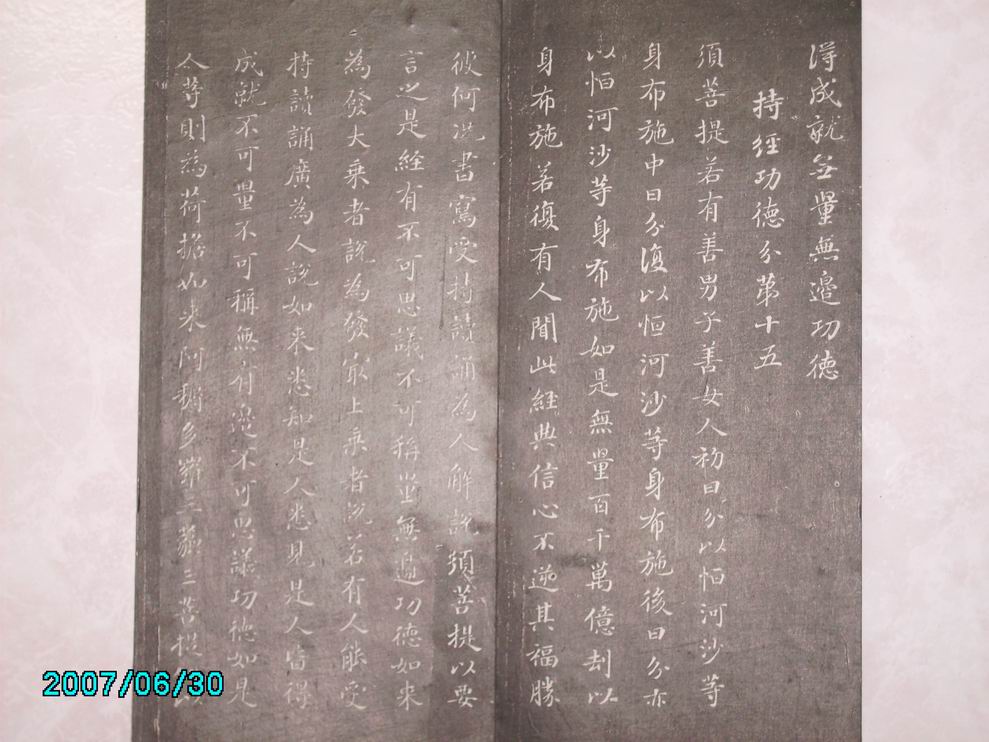 得成就無量無邊功德
持經功德分第十五
須菩提若有善男子善女人初日分以恒河沙等
身布施中日分復以恒河沙等身布施後日分亦
以恒河沙等身布施如是無量百千萬億劫以
身布施若復有人聞此經典信心不逆其福勝
彼何況書寫受持讀誦為人解說須菩提以要
言之是經有不可思議不可稱量無邊功德如來
為發大乘者說為發最上乘者說若有人能受
持讀誦廣為人說如來悉知是人悉見是人皆得
成就不可量不可稱無有邊不可思議功德如是
人等則為荷擔如來阿耨多羅三藐三菩提
2007/06/30